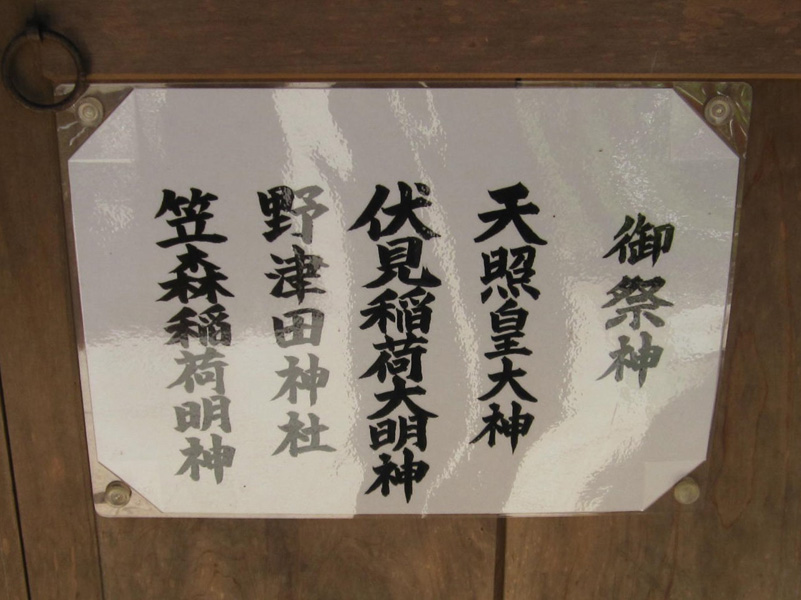 御祭神
天照皇大神
伏見稲荷大明神
野津田神社
笠森稲荷明神